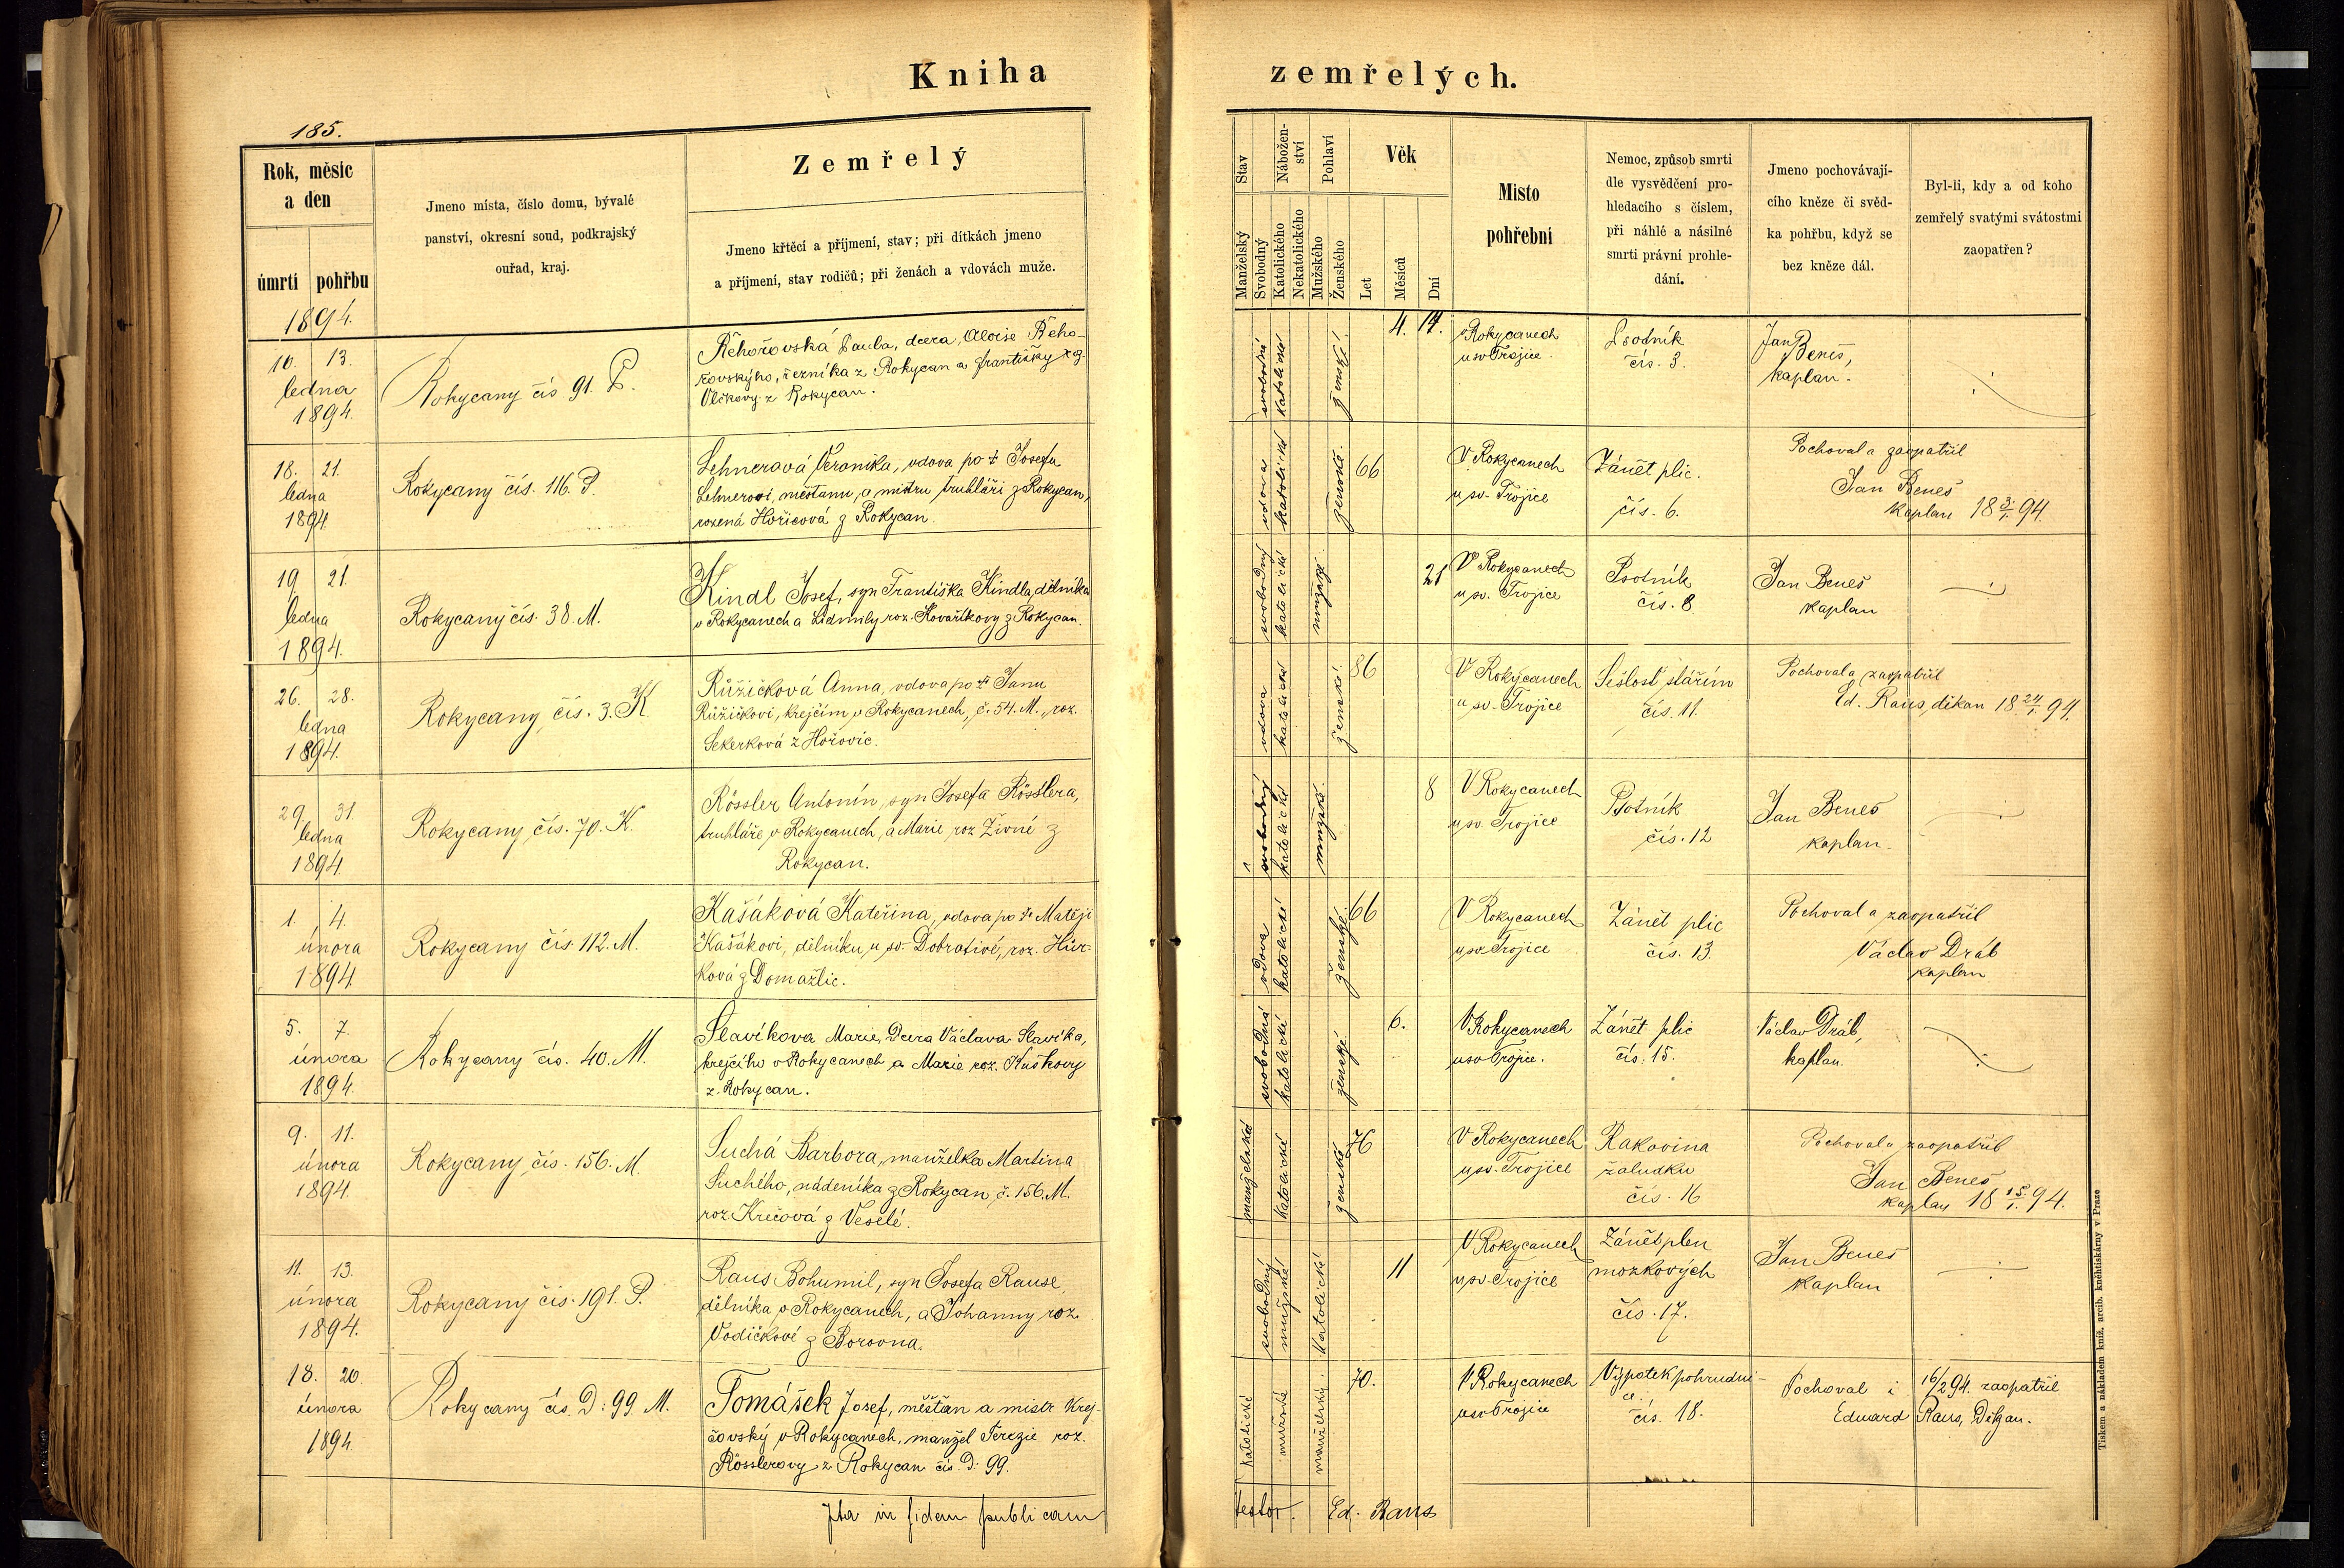 Kniha
zemřelých.
185.
Rok, měsíc
a den
úmrtí pohřbu
1894.
Jmeno místa, číslo domu, bývalé
panství, okresní soud, podkrajský
ouřad, kraj.
Zemřelý
Jmeno křtěcí a příjmení, stav; při dítkách jmeno
a příjmení, stav rodičů; při ženách a vdovách muže.
Stav
Manželský
Svobodný
Nábožen-
ství
Katolického
Nekatolického
Pohlaví
Mužského
Ženského
Věk
Let
Měsíců
Dní
Místo
pohřební
Nemoc, způsob smrti
dle vysvědčení pro-
hledacího s číslem,
při náhlé a násilné
smrti právní prohle-
dání.
Jmeno pochovávají-
cího kněze či svěd-
ka pohřbu, když se
bez kněze dál.
Byl-li, kdy a od koho
zemřelý svatými svátostmi
zaopatřen?
10. 13.
ledna
1894.
Rokycany čís 91. P.
Řehořovská Paula, dcera Aloise Řeho-
řovskýho, řezníka z Rokycan a Františky
Vlčkovy z Rokycan.
svobodná
katolické
ženské
4. 14.
v Rokycanech
u sv Trojice.
Psodník
čís. 3.
Jan
Beneš,
kaplan.
18. 21.
ledna
1894.
Rokycany čís. 116. P.
Lehnerová Veronika, vdova po † Josefu
Lehnerovi, měšťanu, a mistru truhláři z Rokycan,
rozená Hořicová z Rokycan.
vdova
katolické
ženské.
66
V Rokycanech
u sv. Trojice
Zánět plic.
čís. 6.
Pochoval a zaopatřil
Jan Beneš
kaplan 18 3/1. 94.
19 21.
ledna
1894.
Rokycany čís. 38. M.
Kindl Josef, syn Františka Kindla, dělníka
v Rokycanech a Lidmily roz. Kovaříkovy z Rokycan.
svobodný
katolické
mužské
21
V Rokycanech
u sv. Trojice
Psotník
čís. 8
Jan Beneš
kaplan
26. 28.
ledna
1894.
Rokycany čís. 3. K
Růžičková Anna, vdova po † Janu
Růžičkovi, krejčím v Rokycanech, č. 54. M., roz.
Sekerková z Hořovic.
vdova
katolické
ženské.
86
V Rokycanech
u sv. Trojice
Sešlosť stářím
čís. 11.
Pochoval a zaopatřil
Ed. Raus, děkan 18 24/1. 94.
29. 31.
ledna
1894.
Rokycany čís. 70. K.
Rössler Antonín, syn Josefa Rösslera,
truhláře v Rokycanech, a Marie roz Živné z
Rokycan.
svobodný
katolické
mužské.
8
V Rokycanech
u sv. Trojice
Psotník
čís. 12
Jan Beneš
kaplan.
1. 4.
února
1894.
Rokycany čís. 112. M.
Kašáková Kateřina, vdova po † Matěji
Kašákovi, dělníku, u sv. Dobrotivé, roz. Hůr-
ková z Domažlic.
vdova
katolické
ženské.
66
V Rokycanech
u sv Trojice
Zánět plic
čís. 13.
Pochoval a zaopatřil
Václav Dráb
kaplan
5. 7.
února
1894.
Rokycany čís. 40. M.
Slavíkova Marie, Dcera Václava Slavíka,
krejčího v Rokycanech a Marie roz. Kuškovy
z. Rokycan.
svobodná
katolické
ženské.
6.
V Rokycanech
u sv Trojice.
Zánět plic
čís. 15.
Václav Dráb,
kaplan.
9. 11.
února
1894.
Rokycany čís. 156. M.
Suchá Barbora, manželka Martina
Suchého, nádeníka z Rokycan, č. 156. M.
roz. Krečová z Veselé.
manželské
katolické
ženské
76
V Rokycanech
u sv. Trojice
Rakovina
žaludku
čís. 16
Pochoval a zaopatřil
Jan Beneš
kaplan 18 15/1. 94.
11. 13.
února
1894.
Rokycany čís. 191. P.
Raus Bohumil, syn Josefa Rause,
dělníka v Rokycanech, a Johanny roz.
Vodičkové z Borovna.
svobodný
mužské
Katolické
11
V Rokycanech
u sv. Trojice
Zánět plen
mozkových
čís. 17.
Jan Beneš
kaplan
18. 20.
února
1894.
Rokycany čís. D: 99. M.
Tomášek Josef, měšťan a mistr krej-
čovský v Rokycanech, manžel Terezie roz.
Rösslerovy z Rokycan čís. D: 99.
Katolické
mužské
manželský.
70.
V Rokycanech
u sv Trojice
Výpotek pohrudni-
ce.
čís. 18.
Pochoval i 16/2 94. zaopatřil
Eduard Raus, Děkan.
Ita in fidem publicam
testor. Ed. Raus
Tiskem a nákladem kníž. arcib. knihtiskárny v Praze